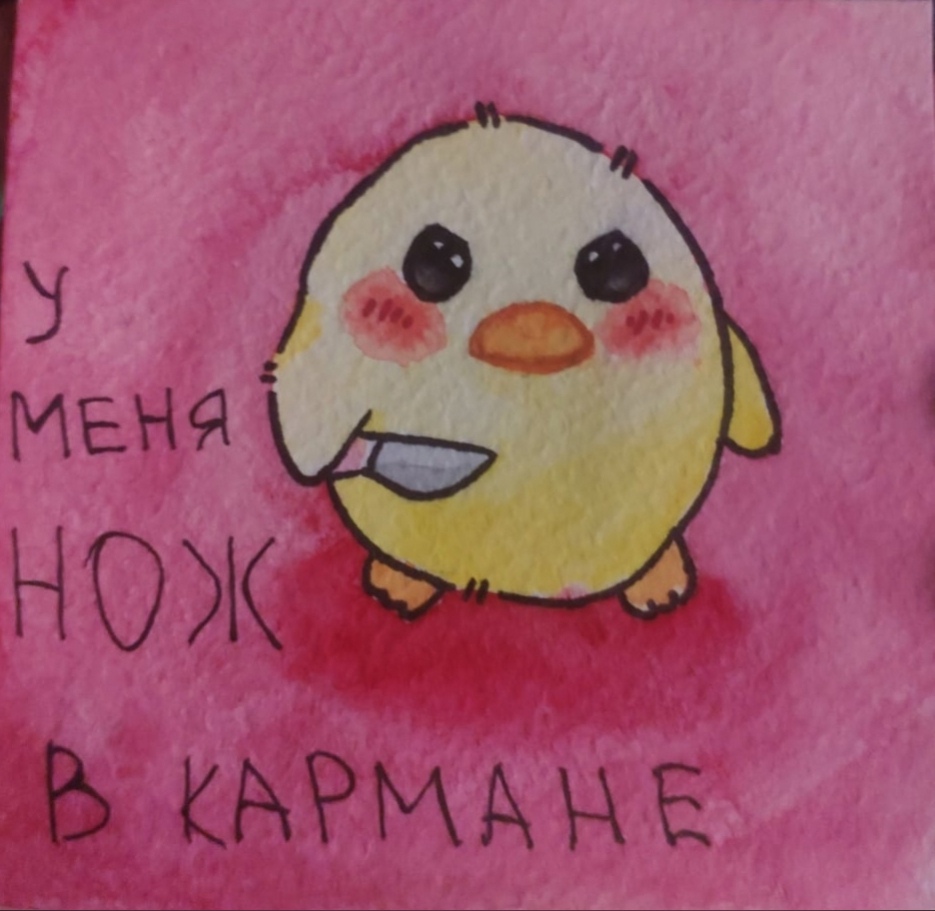 У
МЕНЯ
НОЖ
В КАРМАНЕ